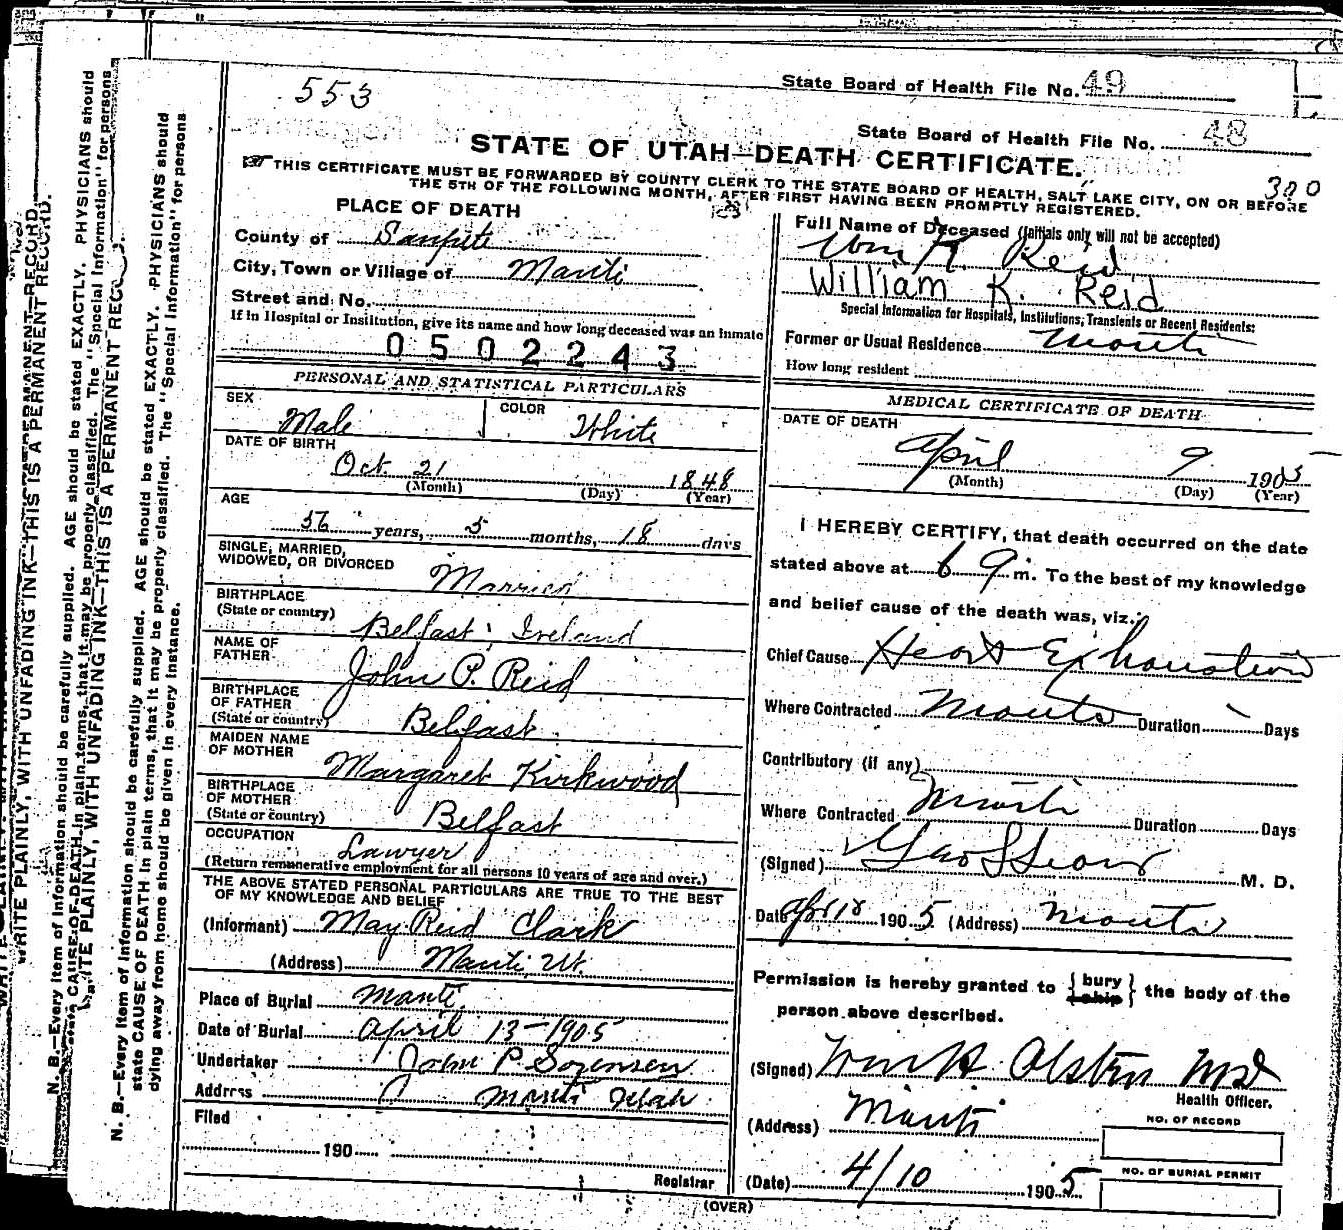 553
State Board of Health File No. 49
State Board of Health File No. 48
STATE OF UTAH—DEATH CERTIFICATE.
300
THIS CERTIFICATE MUST BE FORWARDED BY COUNTY CLERK TO THE STATE BOARD OF HEALTH, SALT LAKE CITY, ON OR BEFORE
THE 5TH OF THE FOLLOWING MONTH, AFTER FIRST HAVING BEEN PROMPTLY REGISTERED.
PLACE OF DEATH
County of Sanpete
City, Town or Village of Manti
Street and No.
If in Hospital or Institution, give its name and how long deceased was an inmate
0502243
PERSONAL AND STATISTICAL PARTICULARS
SEX Male COLOR White
DATE OF BIRTH
Oct. 21 1848
(Month) (Day) (Year)
AGE
56 years, 5 months, 18 days
SINGLE, MARRIED,
WIDOWED, OR DIVORCED Married
BIRTHPLACE
(State or country) Belfast, Ireland
NAME OF
FATHER John P. Reid
BIRTHPLACE
OF FATHER
(State or country) Belfast
MAIDEN NAME
OF MOTHER Margaret Kirkwood
BIRTHPLACE
OF MOTHER
(State or country) Belfast
OCCUPATION Lawyer
(Return remunerative employment for all persons 10 years of age and over.)
THE ABOVE STATED PERSONAL PARTICULARS ARE TRUE TO THE BEST
OF MY KNOWLEDGE AND BELIEF
(Informant) May Reid Clark
(Address) Manti Ut.
Place of Burial Manti
Date of Burial April 13-1905
Undertaker John P. Sorensen
Address Manti Utah
Filed
190
Registrar
Full Name of Deceased (Initials only will not be accepted)
Wm K. Reid
William K. Reid
Special Information for Hospitals, Institutions, Transients or Recent Residents:
Former or Usual Residence Manti
How long resident
MEDICAL CERTIFICATE OF DEATH
DATE OF DEATH
April 9 1905
(Month) (Day) (Year)
I HEREBY CERTIFY, that death occurred on the date
stated above at 6 m. To the best of my knowledge
and belief cause of the death was, viz.:
Chief Cause Heart Exhaustion
Where Contracted Manti Duration Days
Contributory (if any)
Where Contracted Manti Duration Days
(Signed) M. D.
Date 1905 (Address) Manti
Permission is hereby granted to { bury ship } the body of the
person above described.
(Signed) Wm H Olsten MD
Health Officer.
(Address) Manti
NO. OF RECORD
(Date) 4/10 1905
NO. OF BURIAL PERMIT
(OVER)
WRITE PLAINLY, WITH UNFADING INK—THIS IS A PERMANENT RECORD.
N. B.—Every item of information should be carefully supplied. AGE should be stated EXACTLY. PHYSICIANS should
state CAUSE OF DEATH in plain terms, that it may be properly classified. The "Special Information" for persons
WRITE PLAINLY, WITH UNFADING INK—THIS IS A PERMANENT RECORD.
N. B.—Every item of information should be carefully supplied. AGE should be stated EXACTLY. PHYSICIANS should
state CAUSE OF DEATH in plain terms, that it may be properly classified. The "Special Information" for persons
dying away from home should be given in every instance.